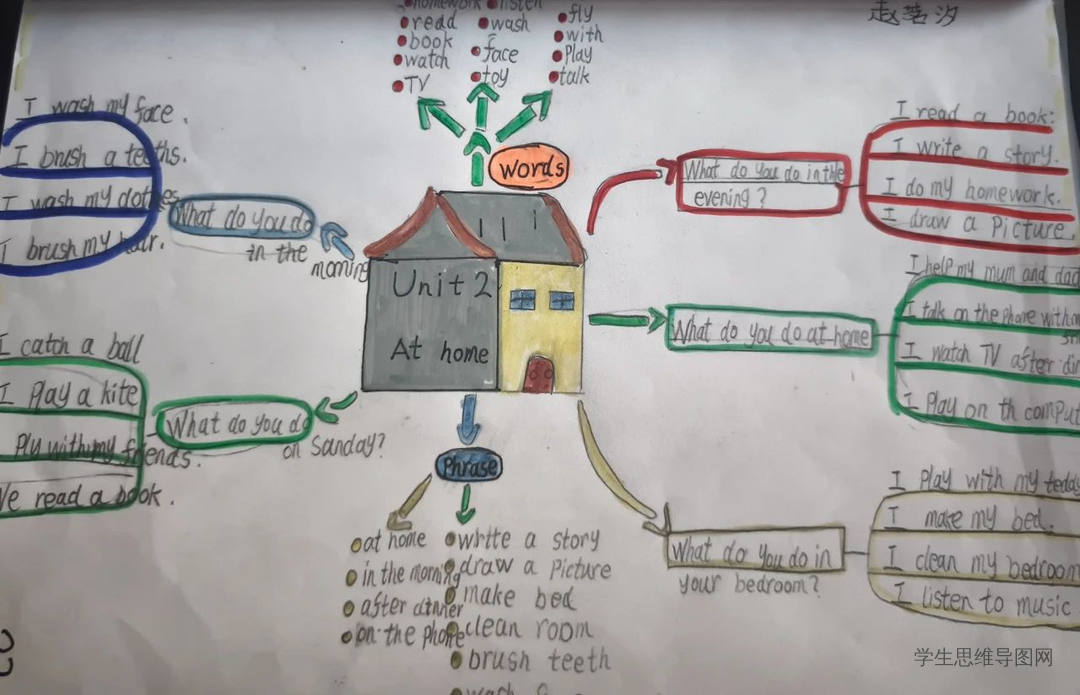 赵茗汐
homework
listen
read
wash
fly
book
face
with
watch
toy
Play
TV
talk
words
I wash my face.
I brush a teeths.
I wash my clothes
I brush my hair.
What do you do
in the
morning
What do you do in the
evening?
I read a book:
I write a story.
I do my homework.
I draw a Picture.
Unit 2
At home
What do you do at home
I help my mum and dad
I talk on the phone with
I watch TV after
I Play on th comput
I catch a ball
I Play a kite
Ply with my friends.
We read a book.
What do you do
on Sanday?
Phrase
at home
in the morning
after dinner
on the phone
write a story
draw a Picture
make bed
clean room
brush teeth
wash
What do you do in
your bedroom?
I Play with my teddy
I make my bed.
I clean my bedroom
I listen to music
学生思维导图网